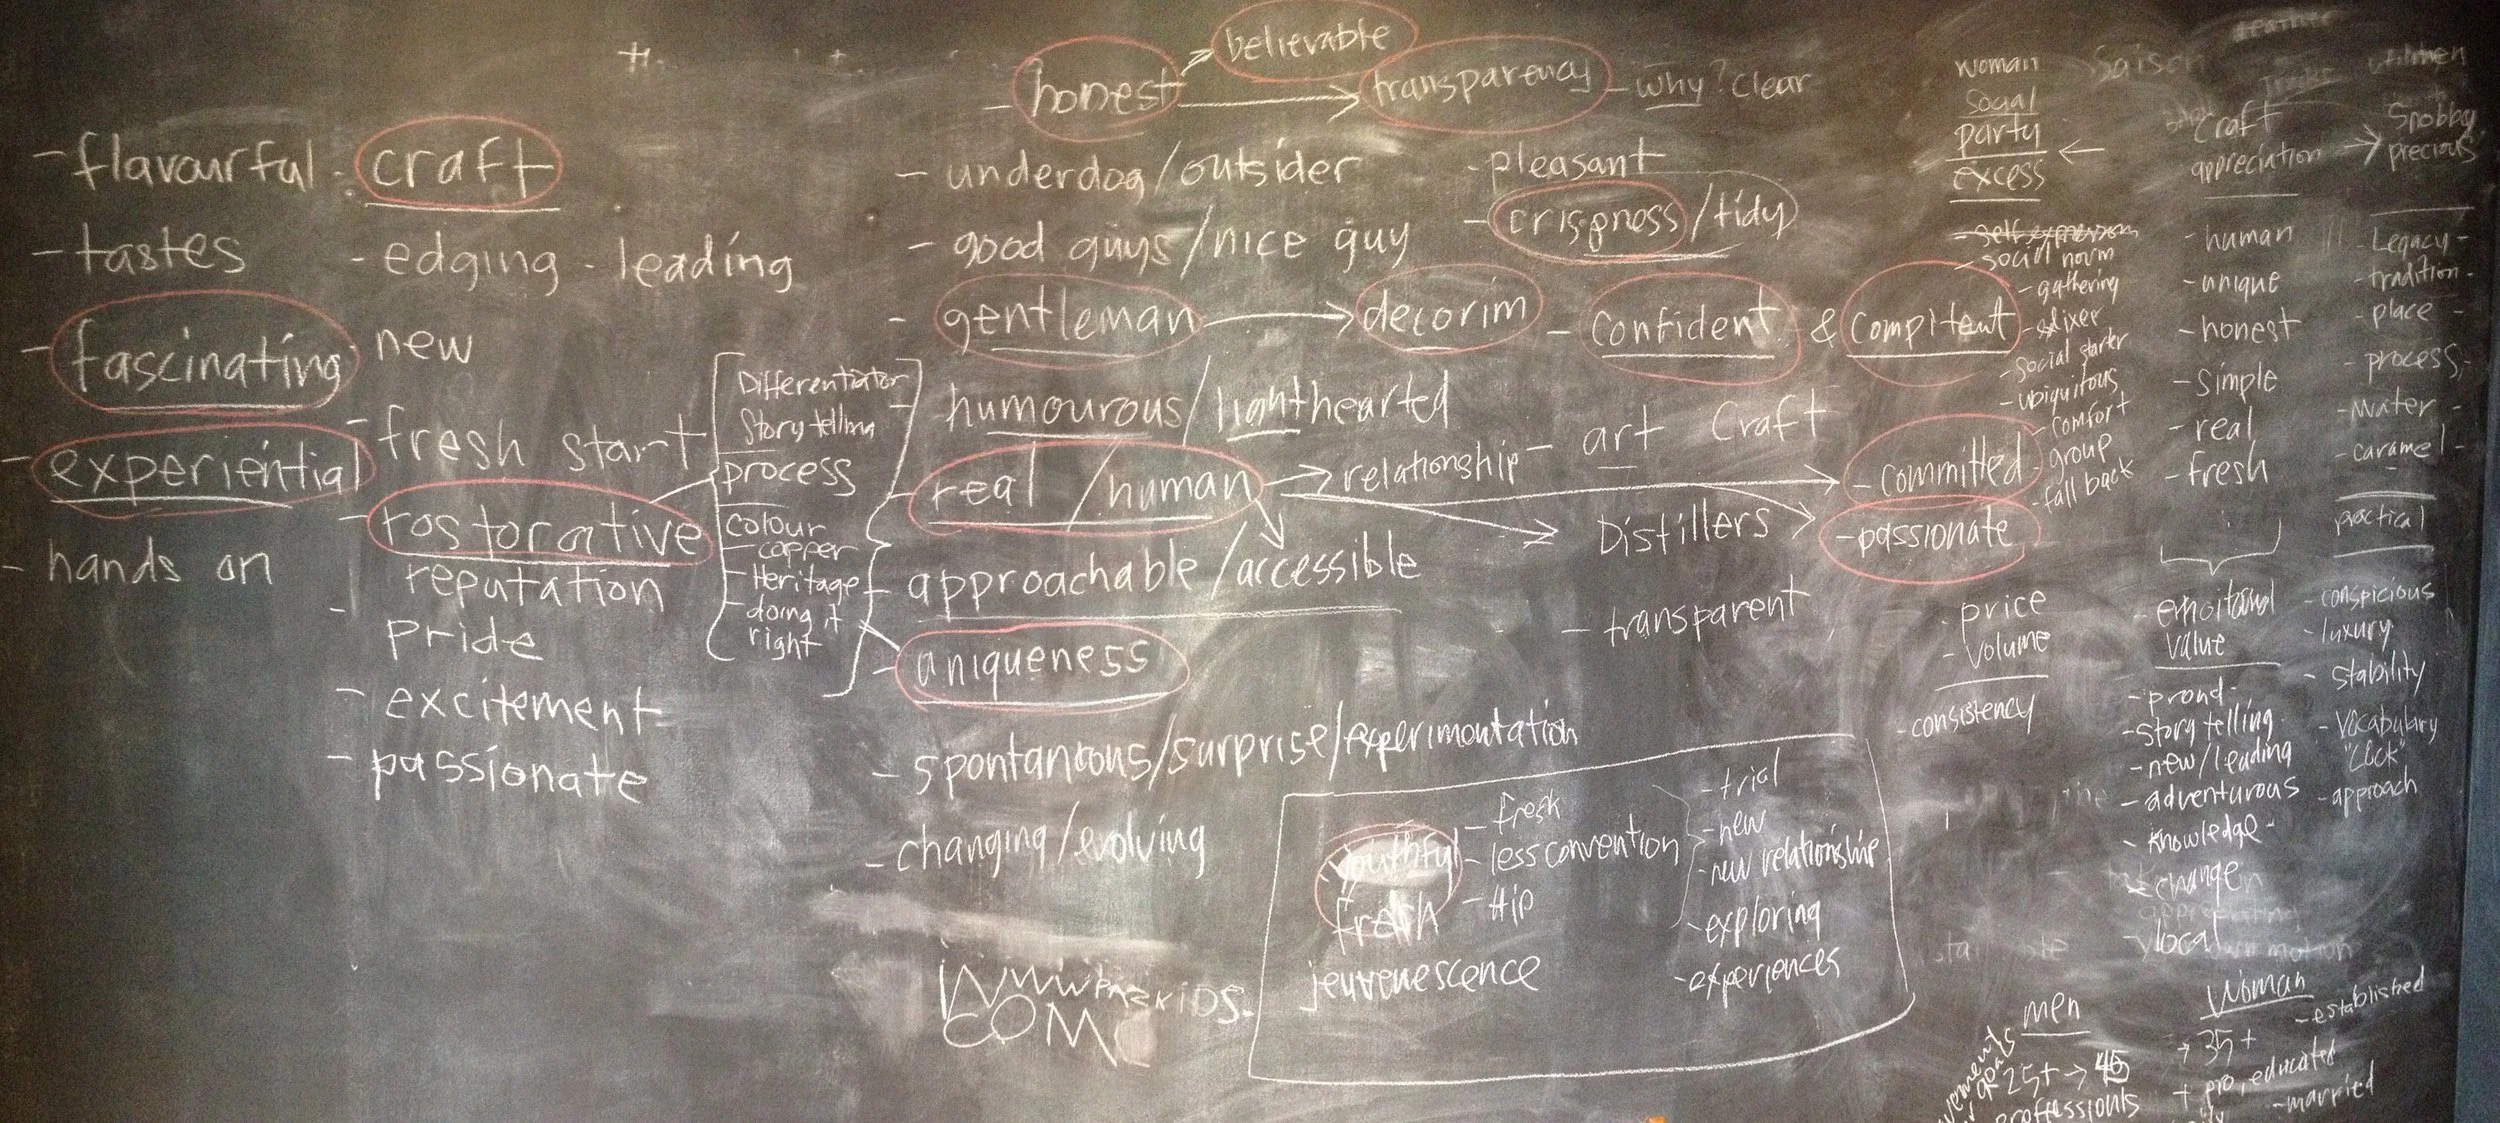 - flavourful
- tastes
- fascinating
- experiential
- hands on
- craft
- edging - leading
new
- fresh start
- rostorative
reputation
- pride
- excitement
- passionate
Differentiator
Story telling
process
colour
- copper
- Heritage
- doing it
right
- honest
believable
transparency
- why? clear
- underdog/outsider
- good guys/nice guy
- pleasant
- crispness/tidy
- gentleman
decorim
- confident
& compitent
- humourous/lighthearted
- real/human
relationship
- art Craft
- committed
Distillers
- passionate
- approachable/accessible
- transparent
- uniqueness
- spontanious/surprise/experimentation
- changing/evolving
www
KIDS.
COM
youthful
fresh
jeuvenescence
- fresh
- less convention
- Hip
- trial
- new
- new relationship
- exploring
- experiences
woman
social
party
excess
- self expression
- social norm
- gathering
- Social starter
- ubiquitous
- comfort
- group
- fall back
- price
- volume
- consistency
Saison
craft
appreciation
- human
- unique
- honest
- simple
- real
- fresh
- emoitonal
value
- proud
- story telling
- new/leading
- adventurous
- knowledge
- change
- local
Snobby
precious
Legacy -
- tradition -
- place -
- process -
- water -
- caramel -
practical
- conspicious
- luxury
- stability
- vocabulary
- approach
men
25+ → 45
proffessionls
Woman
- established
→ 35+
+ pro, educated
- married